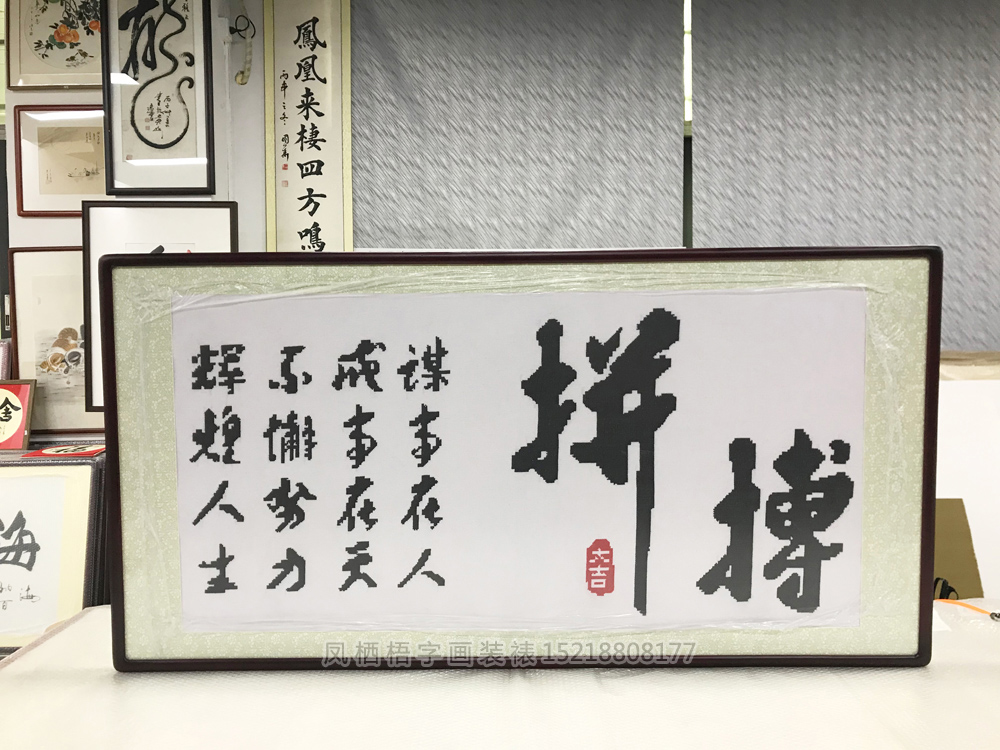 鳳凰来棲四方鳴
拼搏
谋事在人
成事在天
不懈努力
辉煌人生
大吉
舍
海
凤栖梧字画装裱15218808177